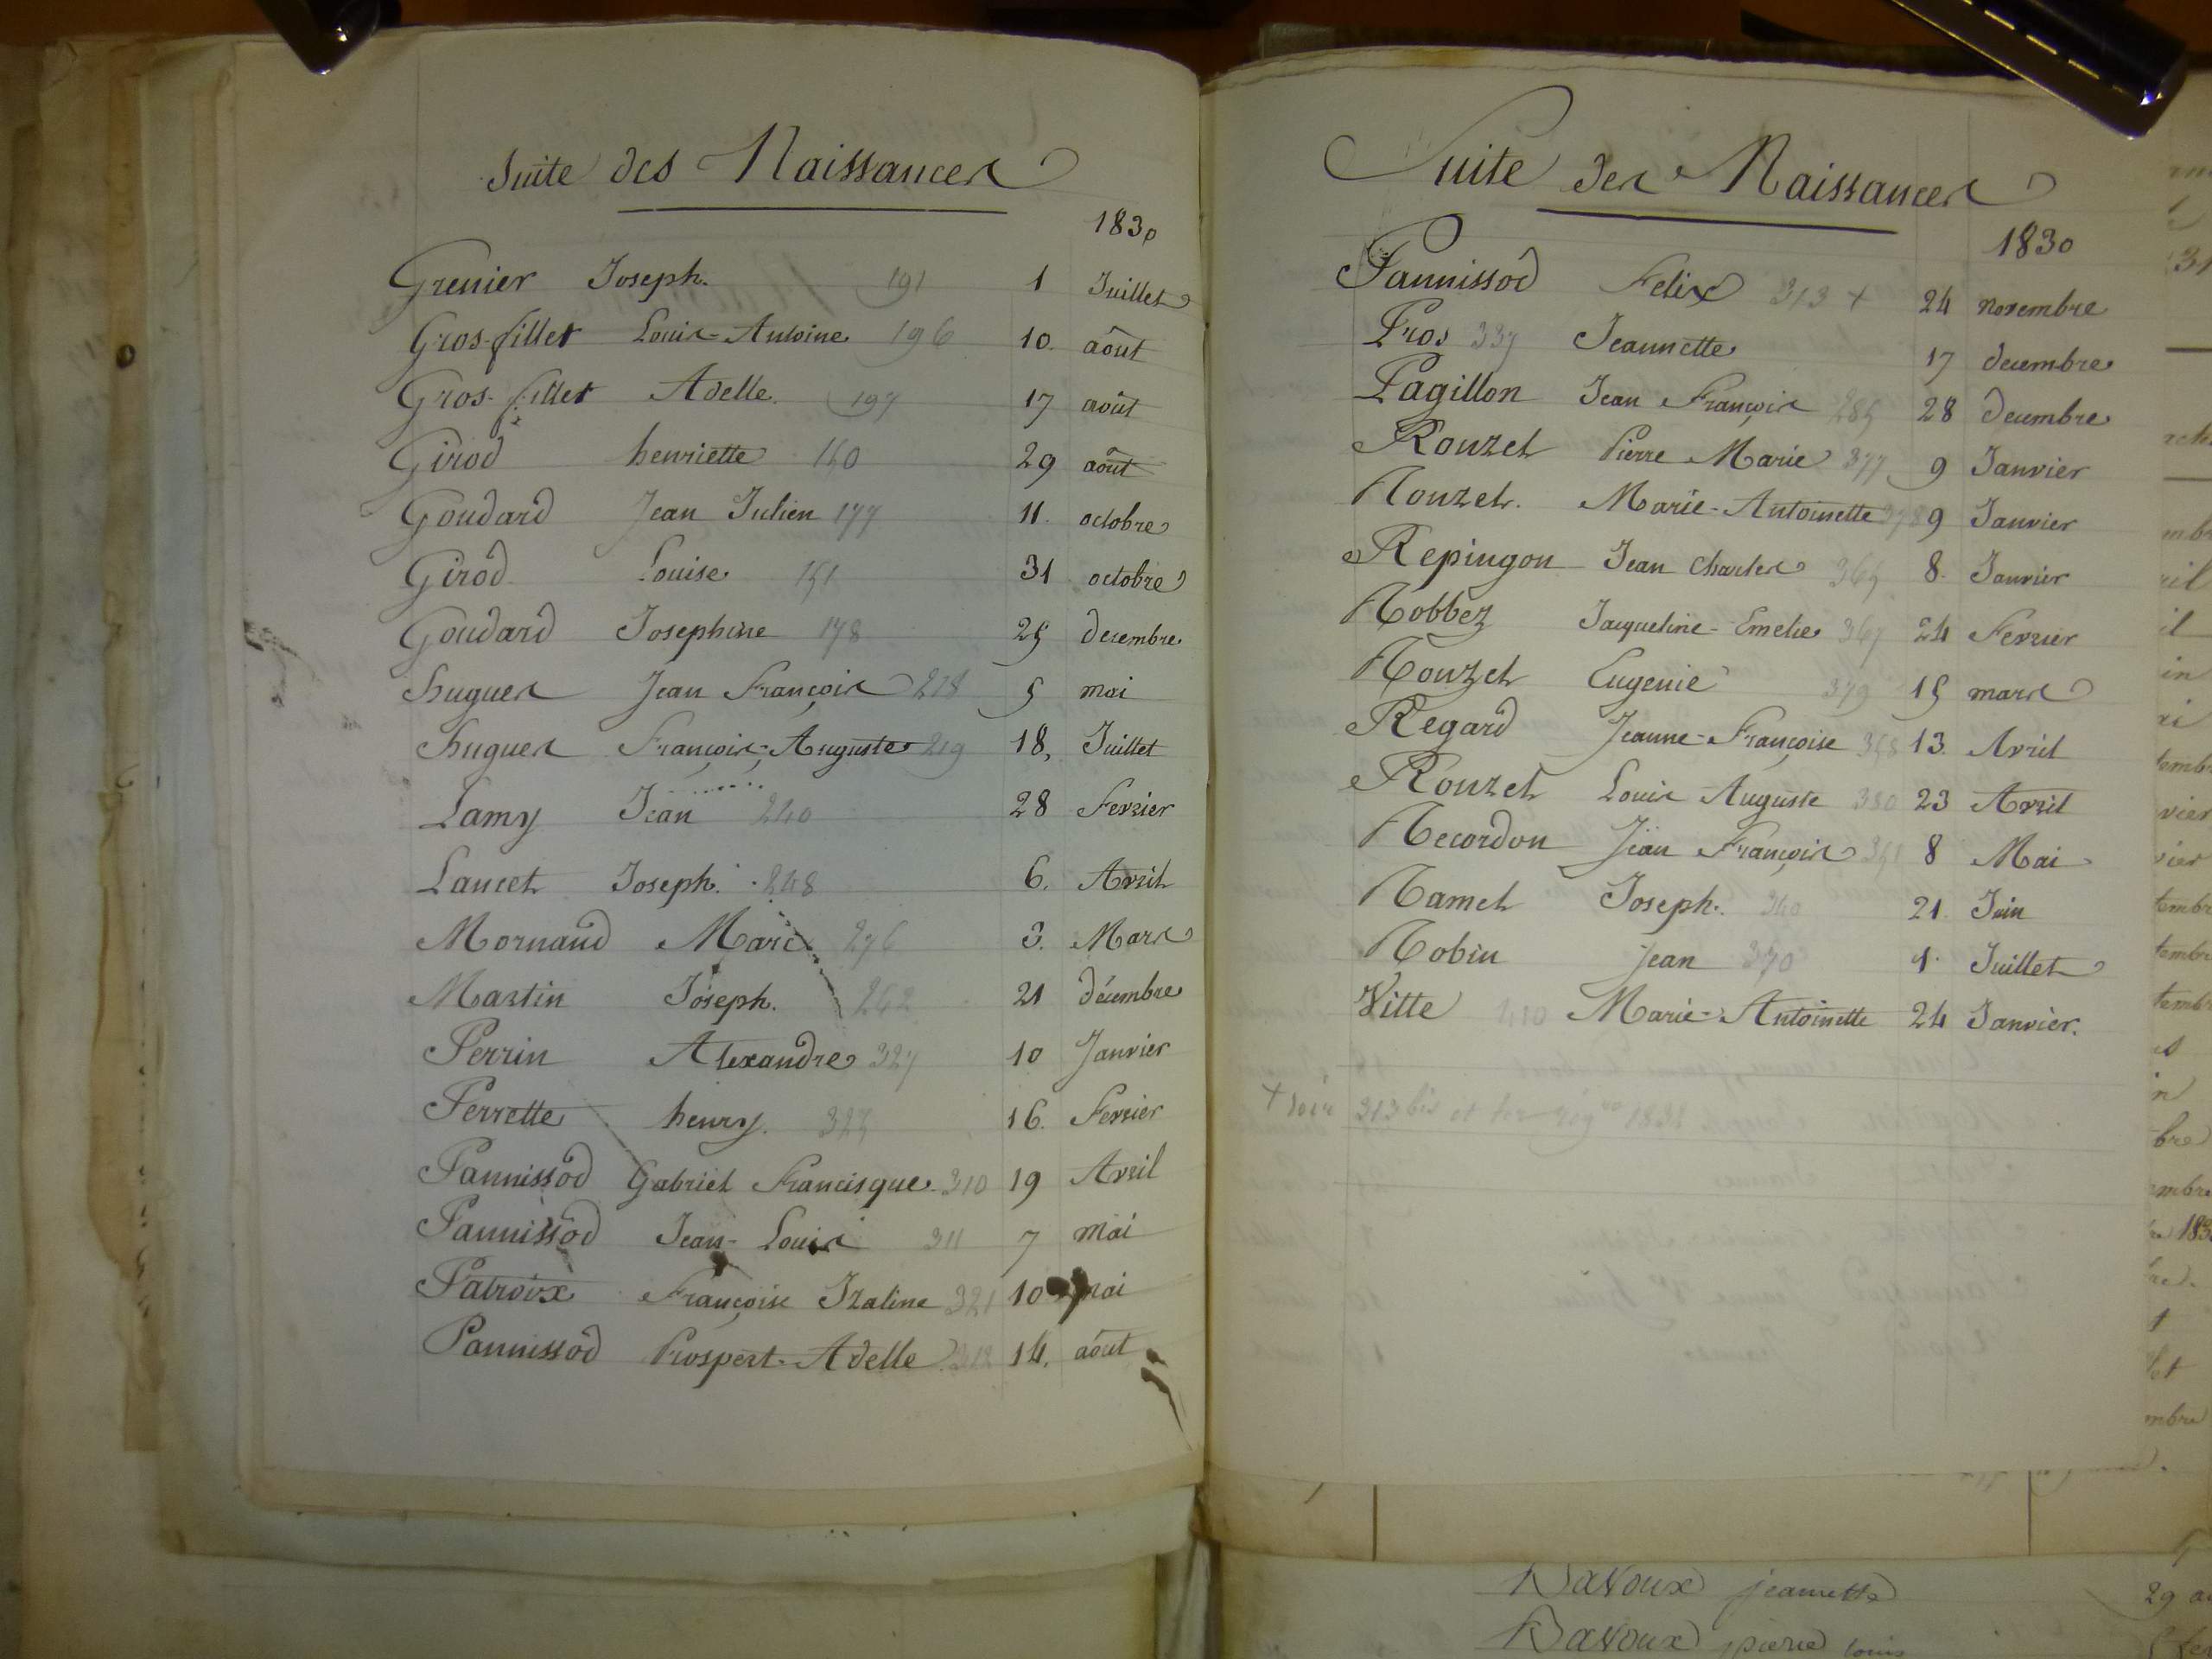 Suite des Naissances
1830
Grenier Joseph. 191 1 Juillet
Gros-fillet Louis-Antoine 196 10. août
Gros-fillet Adelle. 197 17 août
Girod henriette 150 29 août
Goudard Jean Julien 177 11. octobre
Girod Louise 151 31 octobre
Goudard Josephine 178 25 decembre
huguès Jean François 218 5 mai
huguès François-Auguste 219 18, Juillet
Lamy Jean 240 28 Fevrier
Lancet Joseph. 248 6. Avril
Mornand Marc 276 3. Mars
Martin Joseph. 262 21 décembre
Perrin Alexandre 327 10 Janvier
Perrette henry. 325 16. Fevrier
Pannissod Gabriel Francisque 310 19 Avril
Pannissod Jean-Louis 311 7 mai
Patroix Françoise Izaline 321 10 mai
Pannissod Prospert-Adelle 312 14, août
Suite des Naissances
1830
Pannissod Felix 313 + 24 novembre
Pros 337 Jeannette 17 decembre
Pagillon Jean François 285 28 decembre
Rouzet Pierre Marie 377 9 Janvier
Rouzet. Marie-Antoinette 378 9 Janvier
Repingon Jean Charles 365 8. Janvier
Robbez Jacqueline-Emelie 367 24 Fevrier
Rouzet Eugenie 379 15 mars
Regard Jeanne-Françoise 358 13. Avril
Rouzet Louis Auguste 380 23 Avril
Recordon Jean François 351 8 Mai
Ramel Joseph. 340 21. Juin
Robin Jean 370 1. Juillet
Vitte 410 Marie-Antoinette 24 Janvier.
+ voir 313 bis et ter 1831
Davoux jeannette 29
Davoux pierre louis